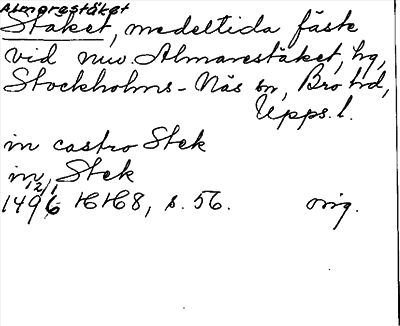 Almarestäket
Stäket, medeltida fäste
vid nuv. Almarestäket, hg,
Stockholms-Näs sn, Bro hd,
Upps. l.
in castro Stek
in Stek
12/1
1496 HH8, s. 56. orig.